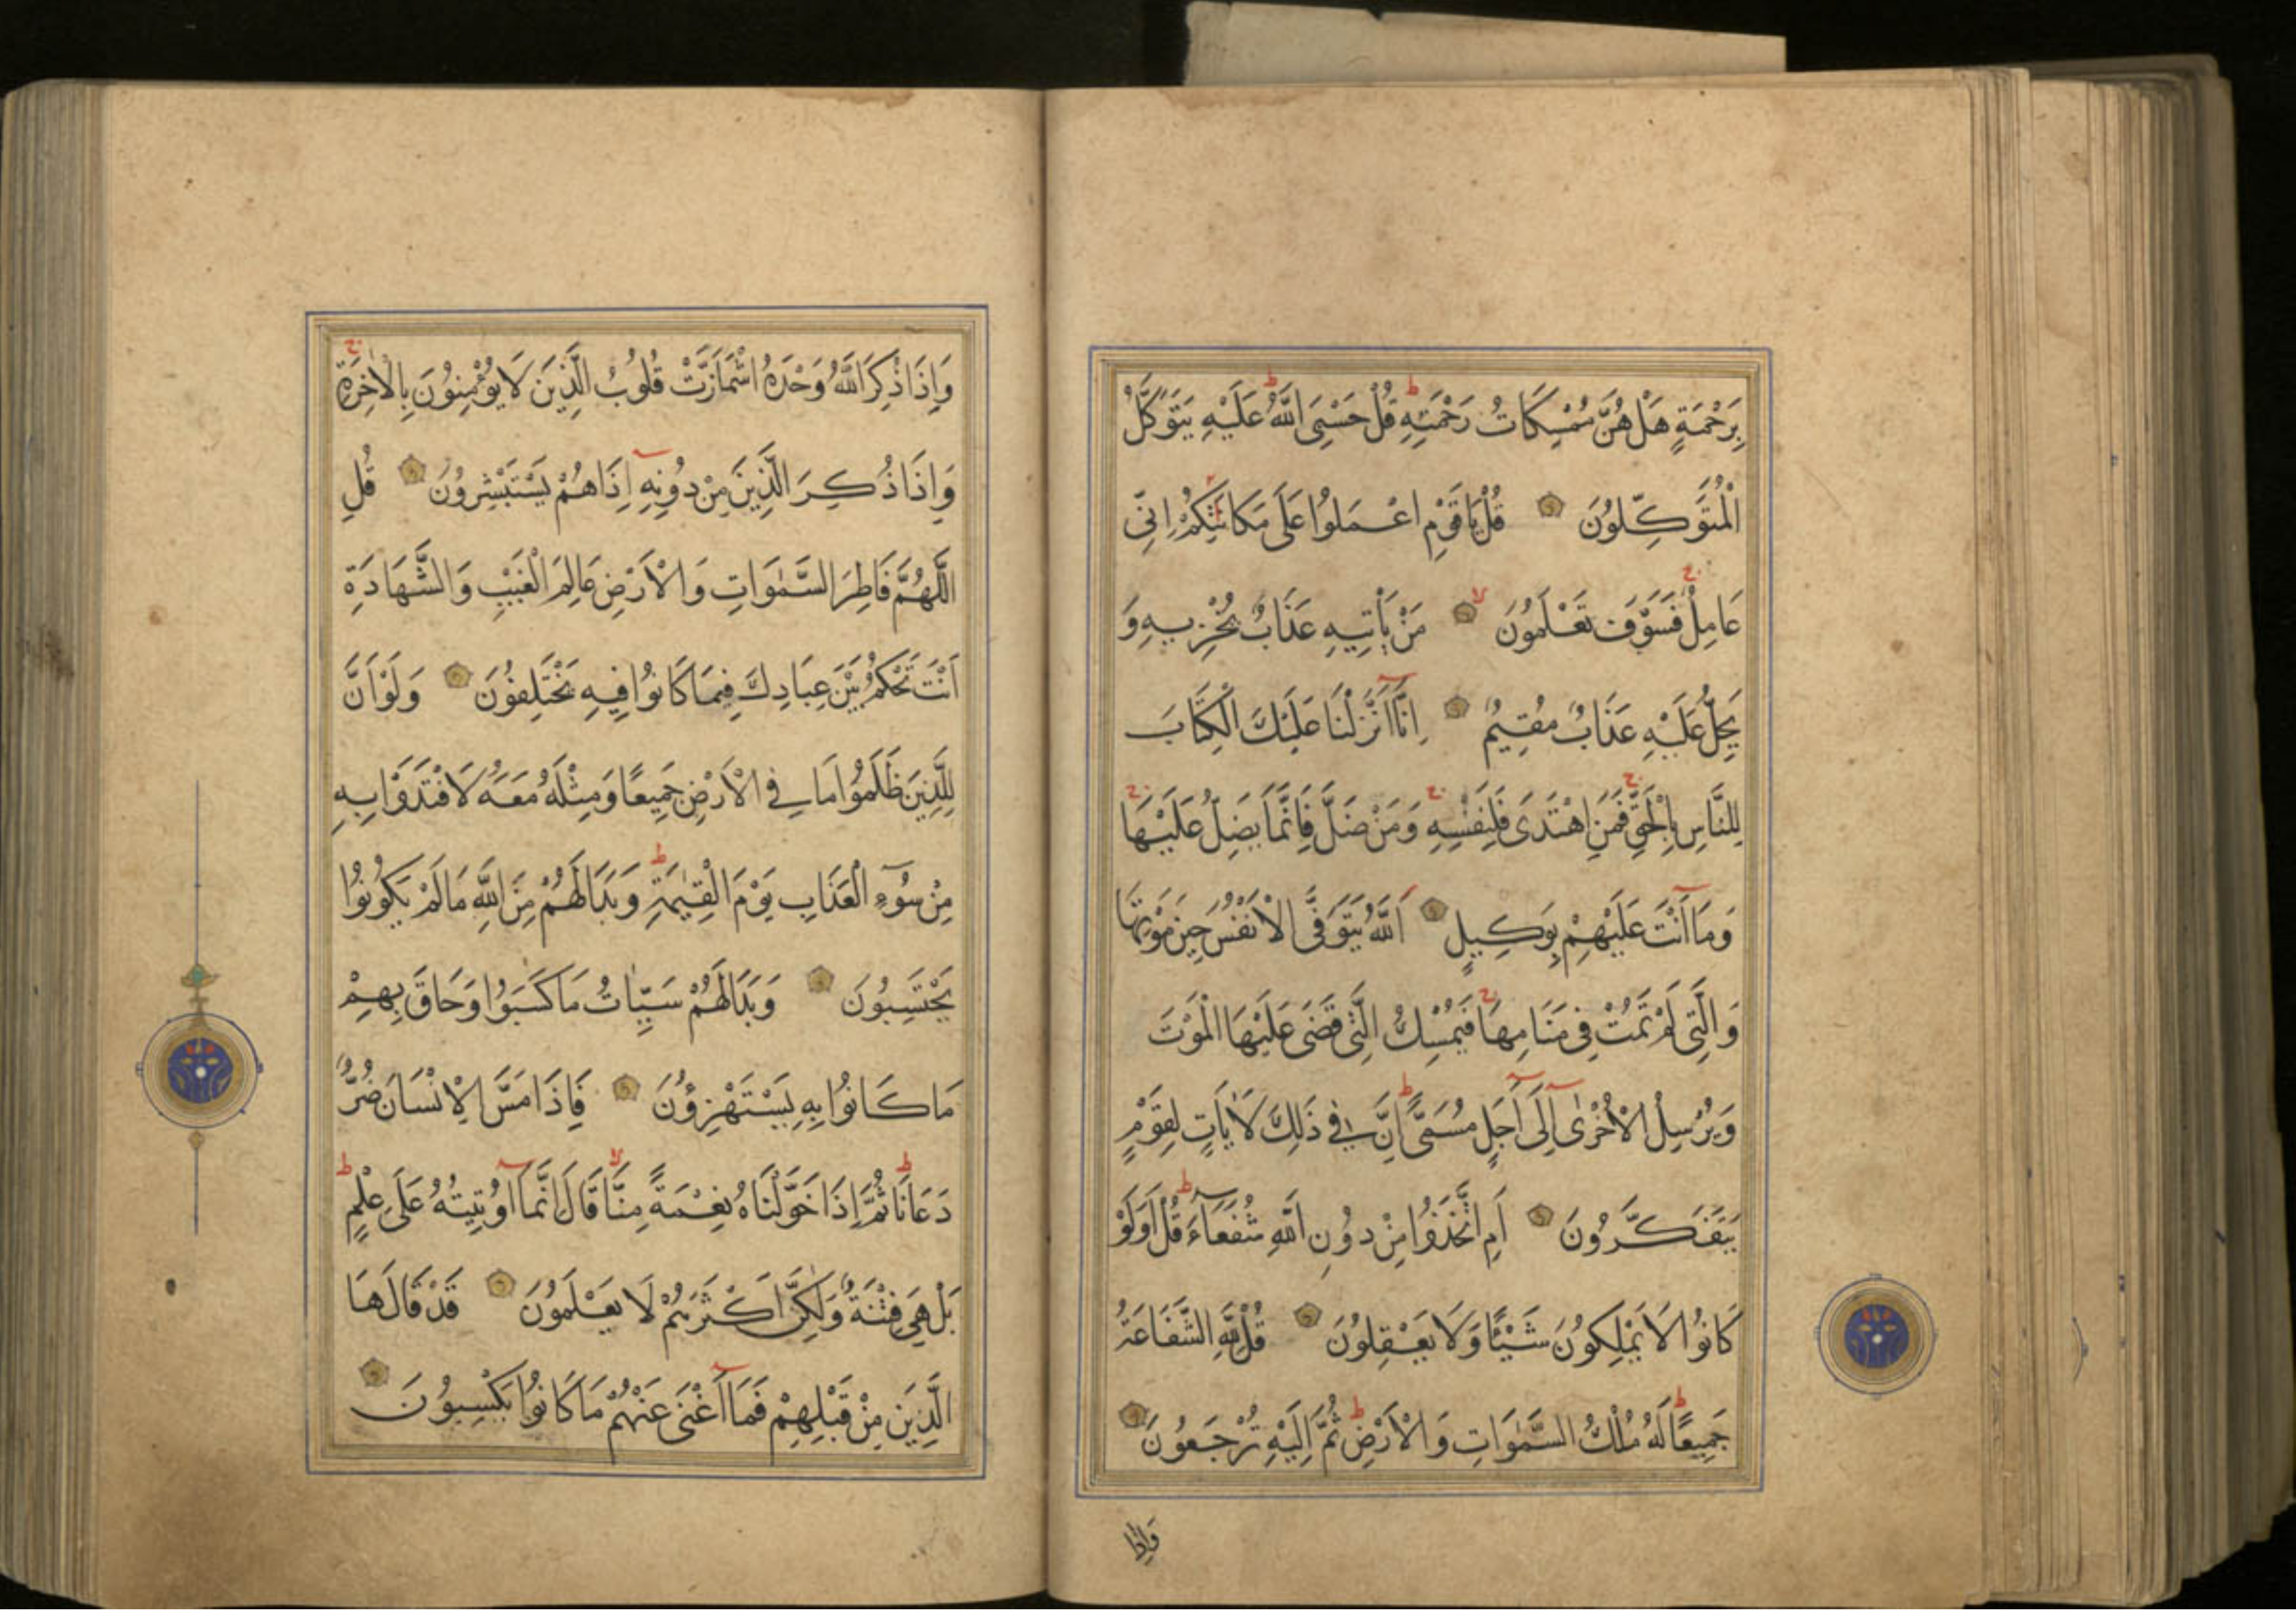 بِرَحْمَةٍ هَلْ هُنَّ مُمْسِكَاتُ رَحْمَتِهِ قُلْ حَسْبِيَ اللَّهُ عَلَيْهِ يَتَوَكَّلُ
الْمُتَوَكِّلُونَ قُلْ يَا قَوْمِ اعْمَلُوا عَلَى مَكَانَتِكُمْ اِنِّي
عَامِلٌ فَسَوْفَ تَعْلَمُونَ مَنْ يَأْتِيهِ عَذَابٌ يُخْزِيهِ وَ
يَحِلُّ عَلَيْهِ عَذَابٌ مُقِيمٌ اِنَّا اَنْزَلْنَا عَلَيْكَ الْكِتَابَ
لِلنَّاسِ بِالْحَقِّ فَمَنِ اهْتَدَى فَلِنَفْسِهِ وَمَنْ ضَلَّ فَاِنَّمَا يَضِلُّ عَلَيْهَا
وَمَا اَنْتَ عَلَيْهِمْ بِوَكِيلٍ اَللَّهُ يَتَوَفَّى الْاَنْفُسَ حِينَ مَوْتِهَا
وَالَّتِي لَمْ تَمُتْ فِي مَنَامِهَا فَيُمْسِكُ الَّتِي قَضَى عَلَيْهَا الْمَوْتَ
وَيُرْسِلُ الْاُخْرٰى اِلَى اَجَلٍ مُسَمًّى اِنَّ فِي ذَلِكَ لَاٰيَاتٍ لِقَوْمٍ
يَتَفَكَّرُونَ اَمِ اتَّخَذُوا مِنْ دُونِ اللَّهِ شُفَعَآءَ قُلْ اَوَلَوْ
كَانُوا لَا يَمْلِكُونَ شَيْئًا وَلَا يَعْقِلُونَ قُلْ لِلَّهِ الشَّفَاعَةُ
جَمِيعًا لَهُ مُلْكُ السَّمٰوَاتِ وَالْاَرْضِ ثُمَّ اِلَيْهِ تُرْجَعُونَ
وَاِذَا
وَاِذَا ذُكِرَ اللَّهُ وَحْدَهُ اشْمَاَزَّتْ قُلُوبُ الَّذِينَ لَا يُؤْمِنُونَ بِالْاٰخِرَةِ
وَاِذَا ذُكِرَ الَّذِينَ مِنْ دُونِهِ اِذَا هُمْ يَسْتَبْشِرُونَ قُلِ
اللَّهُمَّ فَاطِرَ السَّمٰوَاتِ وَالْاَرْضِ عَالِمَ الْغَيْبِ وَالشَّهَادَةِ
اَنْتَ تَحْكُمُ بَيْنَ عِبَادِكَ فِيمَا كَانُوا فِيهِ يَخْتَلِفُونَ وَلَوْ اَنَّ
لِلَّذِينَ ظَلَمُوا مَا فِي الْاَرْضِ جَمِيعًا وَمِثْلَهُ مَعَهُ لَافْتَدَوْا بِهِ
مِنْ سُوٓءِ الْعَذَابِ يَوْمَ الْقِيٰمَةِ وَبَدَا لَهُمْ مِنَ اللَّهِ مَا لَمْ يَكُونُوا
يَحْتَسِبُونَ وَبَدَا لَهُمْ سَيِّئَاتُ مَا كَسَبُوا وَحَاقَ بِهِمْ
مَا كَانُوا بِهِ يَسْتَهْزِؤُنَ فَاِذَا مَسَّ الْاِنْسَانَ ضُرٌّ
دَعَانَا ثُمَّ اِذَا خَوَّلْنَاهُ نِعْمَةً مِنَّا قَالَ اِنَّمَا اُوتِيتُهُ عَلَى عِلْمٍ
بَلْ هِيَ فِتْنَةٌ وَلَكِنَّ اَكْثَرَهُمْ لَا يَعْلَمُونَ قَدْ قَالَهَا
الَّذِينَ مِنْ قَبْلِهِمْ فَمَا اَغْنَى عَنْهُمْ مَا كَانُوا يَكْسِبُونَ